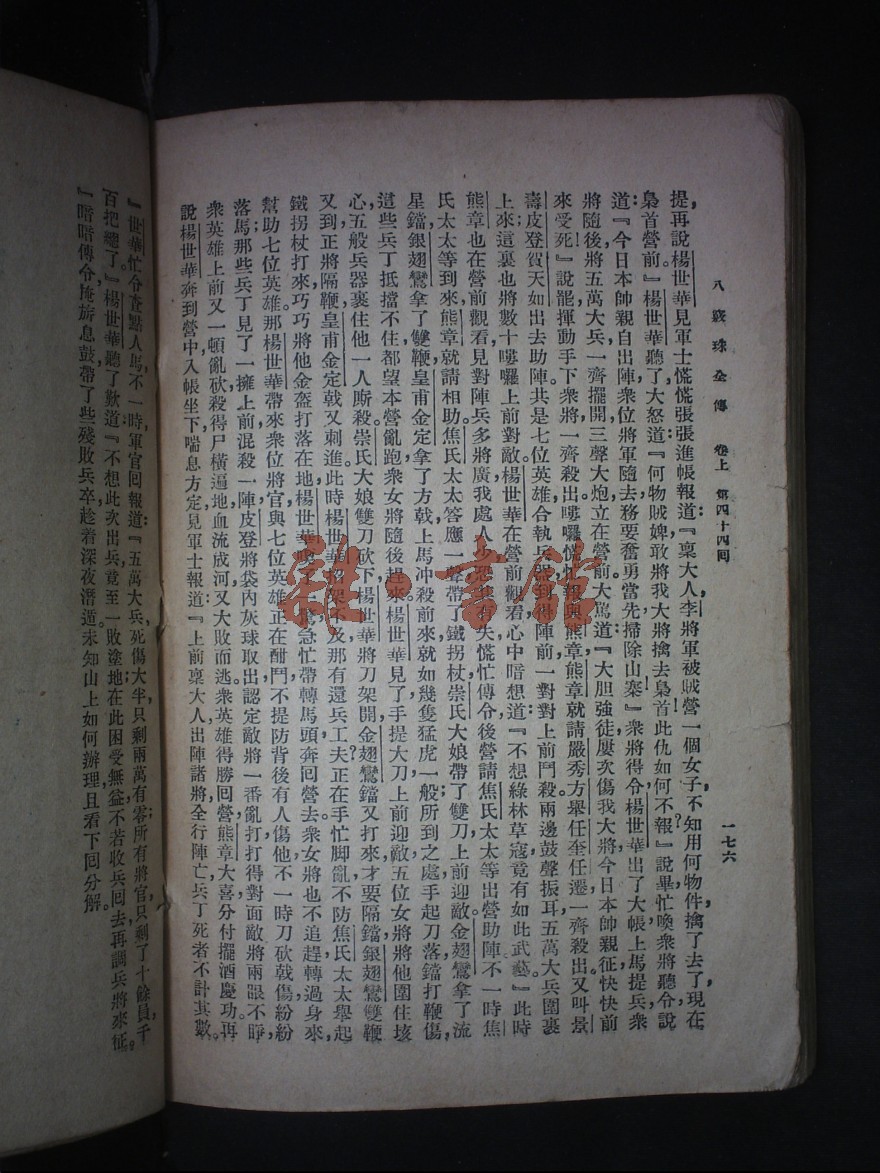 八竅珠全傳　卷上　第四十四回　一七六
提，再說楊世華見軍士慌慌張張進帳報道：『稟大人李將軍被賊營一個女子，不知用何物件擒了去了，現在
梟首營前！』楊世華聽了大怒道：『何物賊婢敢將我大將擒去梟首此仇如何不報？』說畢忙喚衆將聽令說
道：『今日本帥親自出陣衆位將軍隨去務要奮勇當先掃除山寨！』衆將得令楊世華出了大帳上馬提兵衆
將隨後將五萬大兵一齊擺開三聲大炮立在營前大罵道：『大胆強徒屢次傷我大將今日本帥親征快快前
來受死！』說罷揮動手下衆將一齊殺出。嘍囉慌忙報與熊章熊章就請嚴秀方舉任奎任遷一齊殺出。又叫景
壽皮登賀天如出去助陣共是七位英雄各執兵器到得陣前一對對上前鬥殺兩邊鼓聲振耳五萬大兵圍裹
上來；這裏也將數十嘍囉上前對敵楊世華在營前觀看心中暗想道：『不想綠林草寇竟有如此武藝。』此時
熊章也在營前觀看見對陣兵多將廣我處人少恐其有失慌忙傳令後營請焦氏太太等出營助陣不一時焦
氏太太等到來熊章就請相助焦氏太太答應一聲帶了鐵拐杖崇氏大娘帶了雙刀上前迎敵金翅鸞拿了流
星鐺銀翅鸞拿了雙鞭皇甫金定拿了方戟上馬冲殺前來就如幾隻猛虎一般所到之處手起刀落鐺打鞭傷，
這些兵丁抵擋不住都望本營亂跑衆女將隨後趕來楊世華見了手提大刀上前迎敵五位女將將他圍住垓
心，五般兵器裹住他一人厮殺。崇氏大娘雙刀砍下楊世華將刀架開金翅鸞鐺又打來才要隔鐺銀翅鸞雙鞭
又到正將隔鞭皇甫金定戟又刺進；此時楊世華招架不及那有還兵工夫？正在手忙脚亂不防焦氏太太舉起
鐵拐杖打來巧巧將他金盔打落在地楊世華嚇了一驚急忙帶轉馬頭奔回營去衆女將也不追趕轉過身來，
幫助七位英雄那楊世華帶來衆位將官與七位英雄正在酣鬥不提防背後有人傷他不一時刀砍戟傷紛紛
落馬那些兵丁見了一擁上前混殺一陣皮登將袋內灰球取出認定敵將一番亂打打得對面敵將兩眼不睜，
衆英雄上前又一頓亂砍殺得尸橫遍地血流成河又大敗而逃。衆英雄得勝回營熊章大喜分付擺酒慶功。再
說楊世華奔到營中入帳坐下喘息方定見軍士報道：『上前稟大人出陣諸將全行陣亡兵丁死者不計其數。
』世華忙令查點人馬不一時軍官回報道：『五萬大兵死傷大半只剩兩萬有零；所有將官只剩了十餘員千
百把總了。』楊世華聽了歎道：『不想此次出兵竟至一敗塗地在此困受無益不若收兵回去再調兵將來征。
』暗暗傳令掩旂息鼓帶了些殘敗兵卒趁着深夜潛遁。未知山上如何辦理且看下回分解。
雜·書館